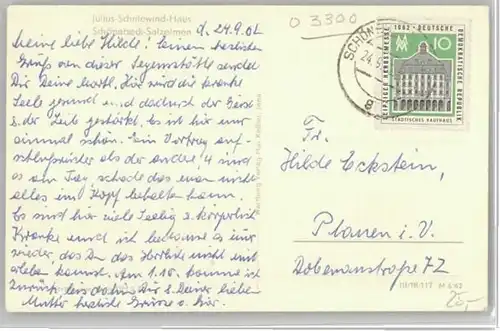 Julius-Schniewind-Haus
Schönebeck-Salzelmen
d. 24.9.62
Meine liebe Hilde! Einen herzlichen
Gruß von dieser Segensstätte sendet
Dir Deine Hier wird die kranke
Seele gesund und dadurch der Geist
u. der Leib gestärkt. Es ist hier
einmal schön. Ein Vortrag auf-
schlußreicher als der andre! 4 sind
es am Tag, schade das man nicht
alles im Kopf behalten kann.
Es sind hier viele Seelig u. körperlich
Kranke und ich bedaure es immer
wieder, das Du das nicht mit
erleben kannst. Am 1.10. komme ich
zurück. Sei Du u. Deine lieben
Mutter herzliche Grüsse v. hier.
O 3300
SCHÖN
24.9.
8
LEIPZIGER HERBSTMESSE 1962
DEUTSCHE DEMOKRATISCHE REPUBLIK
10
STÄDTISCHES KAUFHAUS
Fr.
Hilde Eckstein,
Plauen i. V.
Dobenaustraße 72
III/18/117 M 4/62